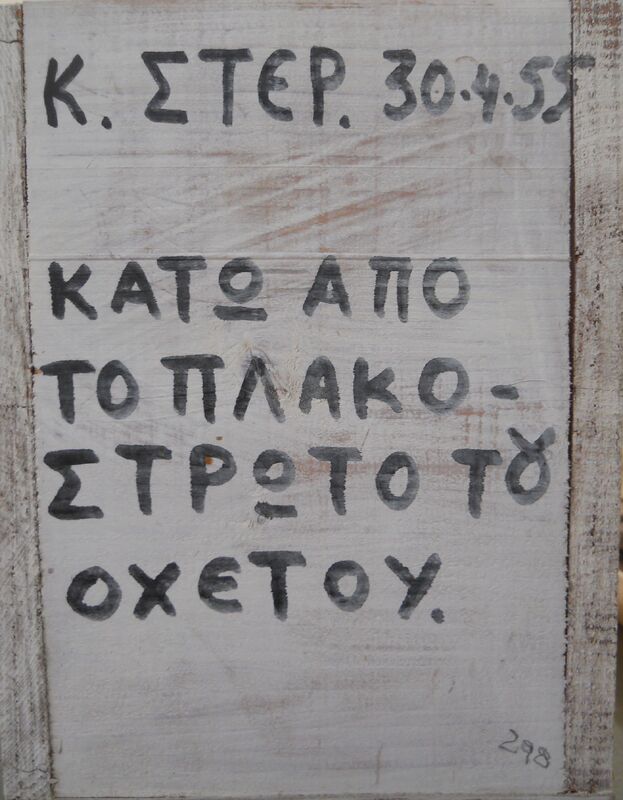 Κ. ΣΤΕΡ. 30.4.55
ΚΑΤΩ ΑΠΟ
ΤΟ ΠΛΑΚΟ-
ΣΤΡΩΤΟ ΤȢ
ΟΧΕΤΟΥ.
298